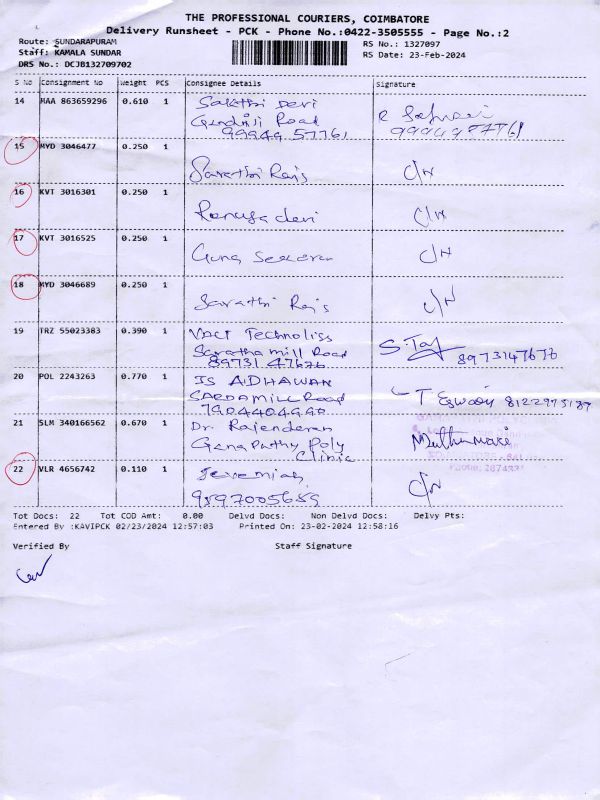 THE PROFESSIONAL COURIERS, COIMBATORE
Delivery Runsheet - PCK - Phone No.:0422-3505555 - Page No.:2
Route: SUNDARAPURAM
Staff: KAMALA SUNDAR
DRS No.: DCJB132709702
RS No.: 1327097
RS Date: 23-Feb-2024
S No Consignment No Weight PCS Consignee Details Signature
14 MAA 863659296 0.610 1 Sakthi Devi
Gandhiji Road
99949 57761
15 MYD 3046477 0.250 1 Sarathi Raj's C/N
16 KVT 3016301 0.250 1 Renuga devi C/N
17 KVT 3016525 0.250 1 Guna Sekaran C/N
18 MYD 3046689 0.250 1 Sarathi Raj's C/N
19 TRZ 55023383 0.390 1 Technoliss
Saratha mill Road
89731 47676 8973147676
20 POL 2243263 0.770 1 IS ADHAWAN
SARDAMILL Road
7904404990
21 SLM 340166562 0.670 1 Dr. Rajenderan
Ganapathy Poly
Clinic
22 VLR 4656742 0.110 1 Jeremiah C/N
9597005689
Tot Docs: 22 Tot COD Amt: 0.00 Delvd Docs: Non Delvd Docs: Delvy Pts:
Entered By :KAVIPCK 02/23/2024 12:57:03 Printed On: 23-02-2024 12:58:16
Verified By Staff Signature